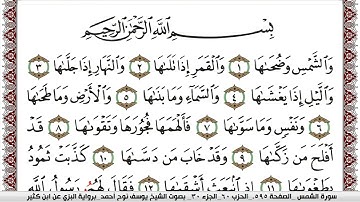 بِسْمِ اللَّهِ الرَّحْمَٰنِ الرَّحِيمِ
وَالشَّمْسِ وَضُحَىٰهَا ١ وَالْقَمَرِ إِذَا تَلَىٰهَا ٢ وَالنَّهَارِ إِذَا جَلَّىٰهَا ٣
وَاللَّيْلِ إِذَا يَغْشَىٰهَا ٤ وَالسَّمَاءِ وَمَا بَنَىٰهَا ٥ وَالْأَرْضِ وَمَا طَحَىٰهَا
٦ وَنَفْسٍ وَمَا سَوَّىٰهَا ٧ فَأَلْهَمَهَا فُجُورَهَا وَتَقْوَىٰهَا ٨ قَدْ
أَفْلَحَ مَن زَكَّىٰهَا ٩ وَقَدْ خَابَ مَن دَسَّىٰهَا ١٠ كَذَّبَتْ ثَمُودُ
بِطَغْوَىٰهَا ١١ إِذِ انۢبَعَثَ أَشْقَىٰهَا ١٢ فَقَالَ لَهُمْ رَسُولُ اللَّهِ
سورة الشمس . الصفحة ٥٩٥ . الحزب ٦٠ . الجزء ٣٠ . بصوت الشيخ يوسف نوح أحمد . برواية البزي عن ابن كثير